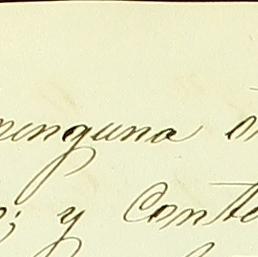 ninguna
; y Conte